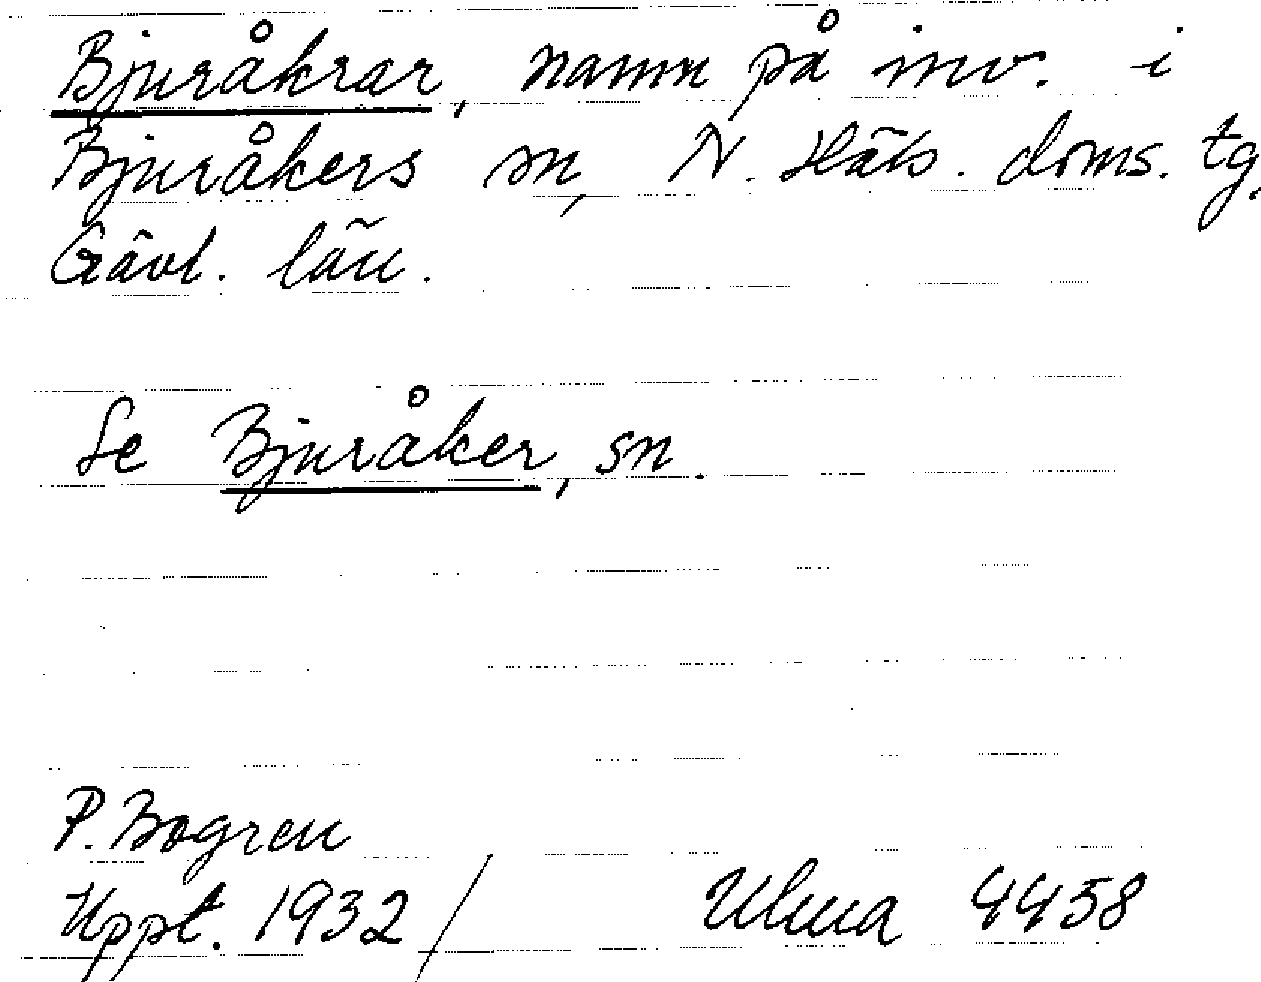 Bjuråkrar, namn på inv. i
Bjuråkers sn, N. Häls. doms. tg,
Gävl. län.
Se Bjuråker, sn.
P. Bogren
Uppt. 1932 / Ulma 4458